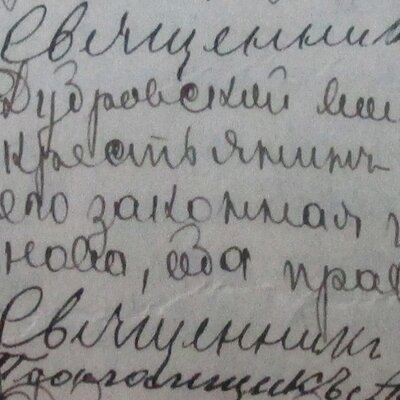 Священник
Дубровский
крестьянинъ
его законная
нова, оба прав
Священникъ